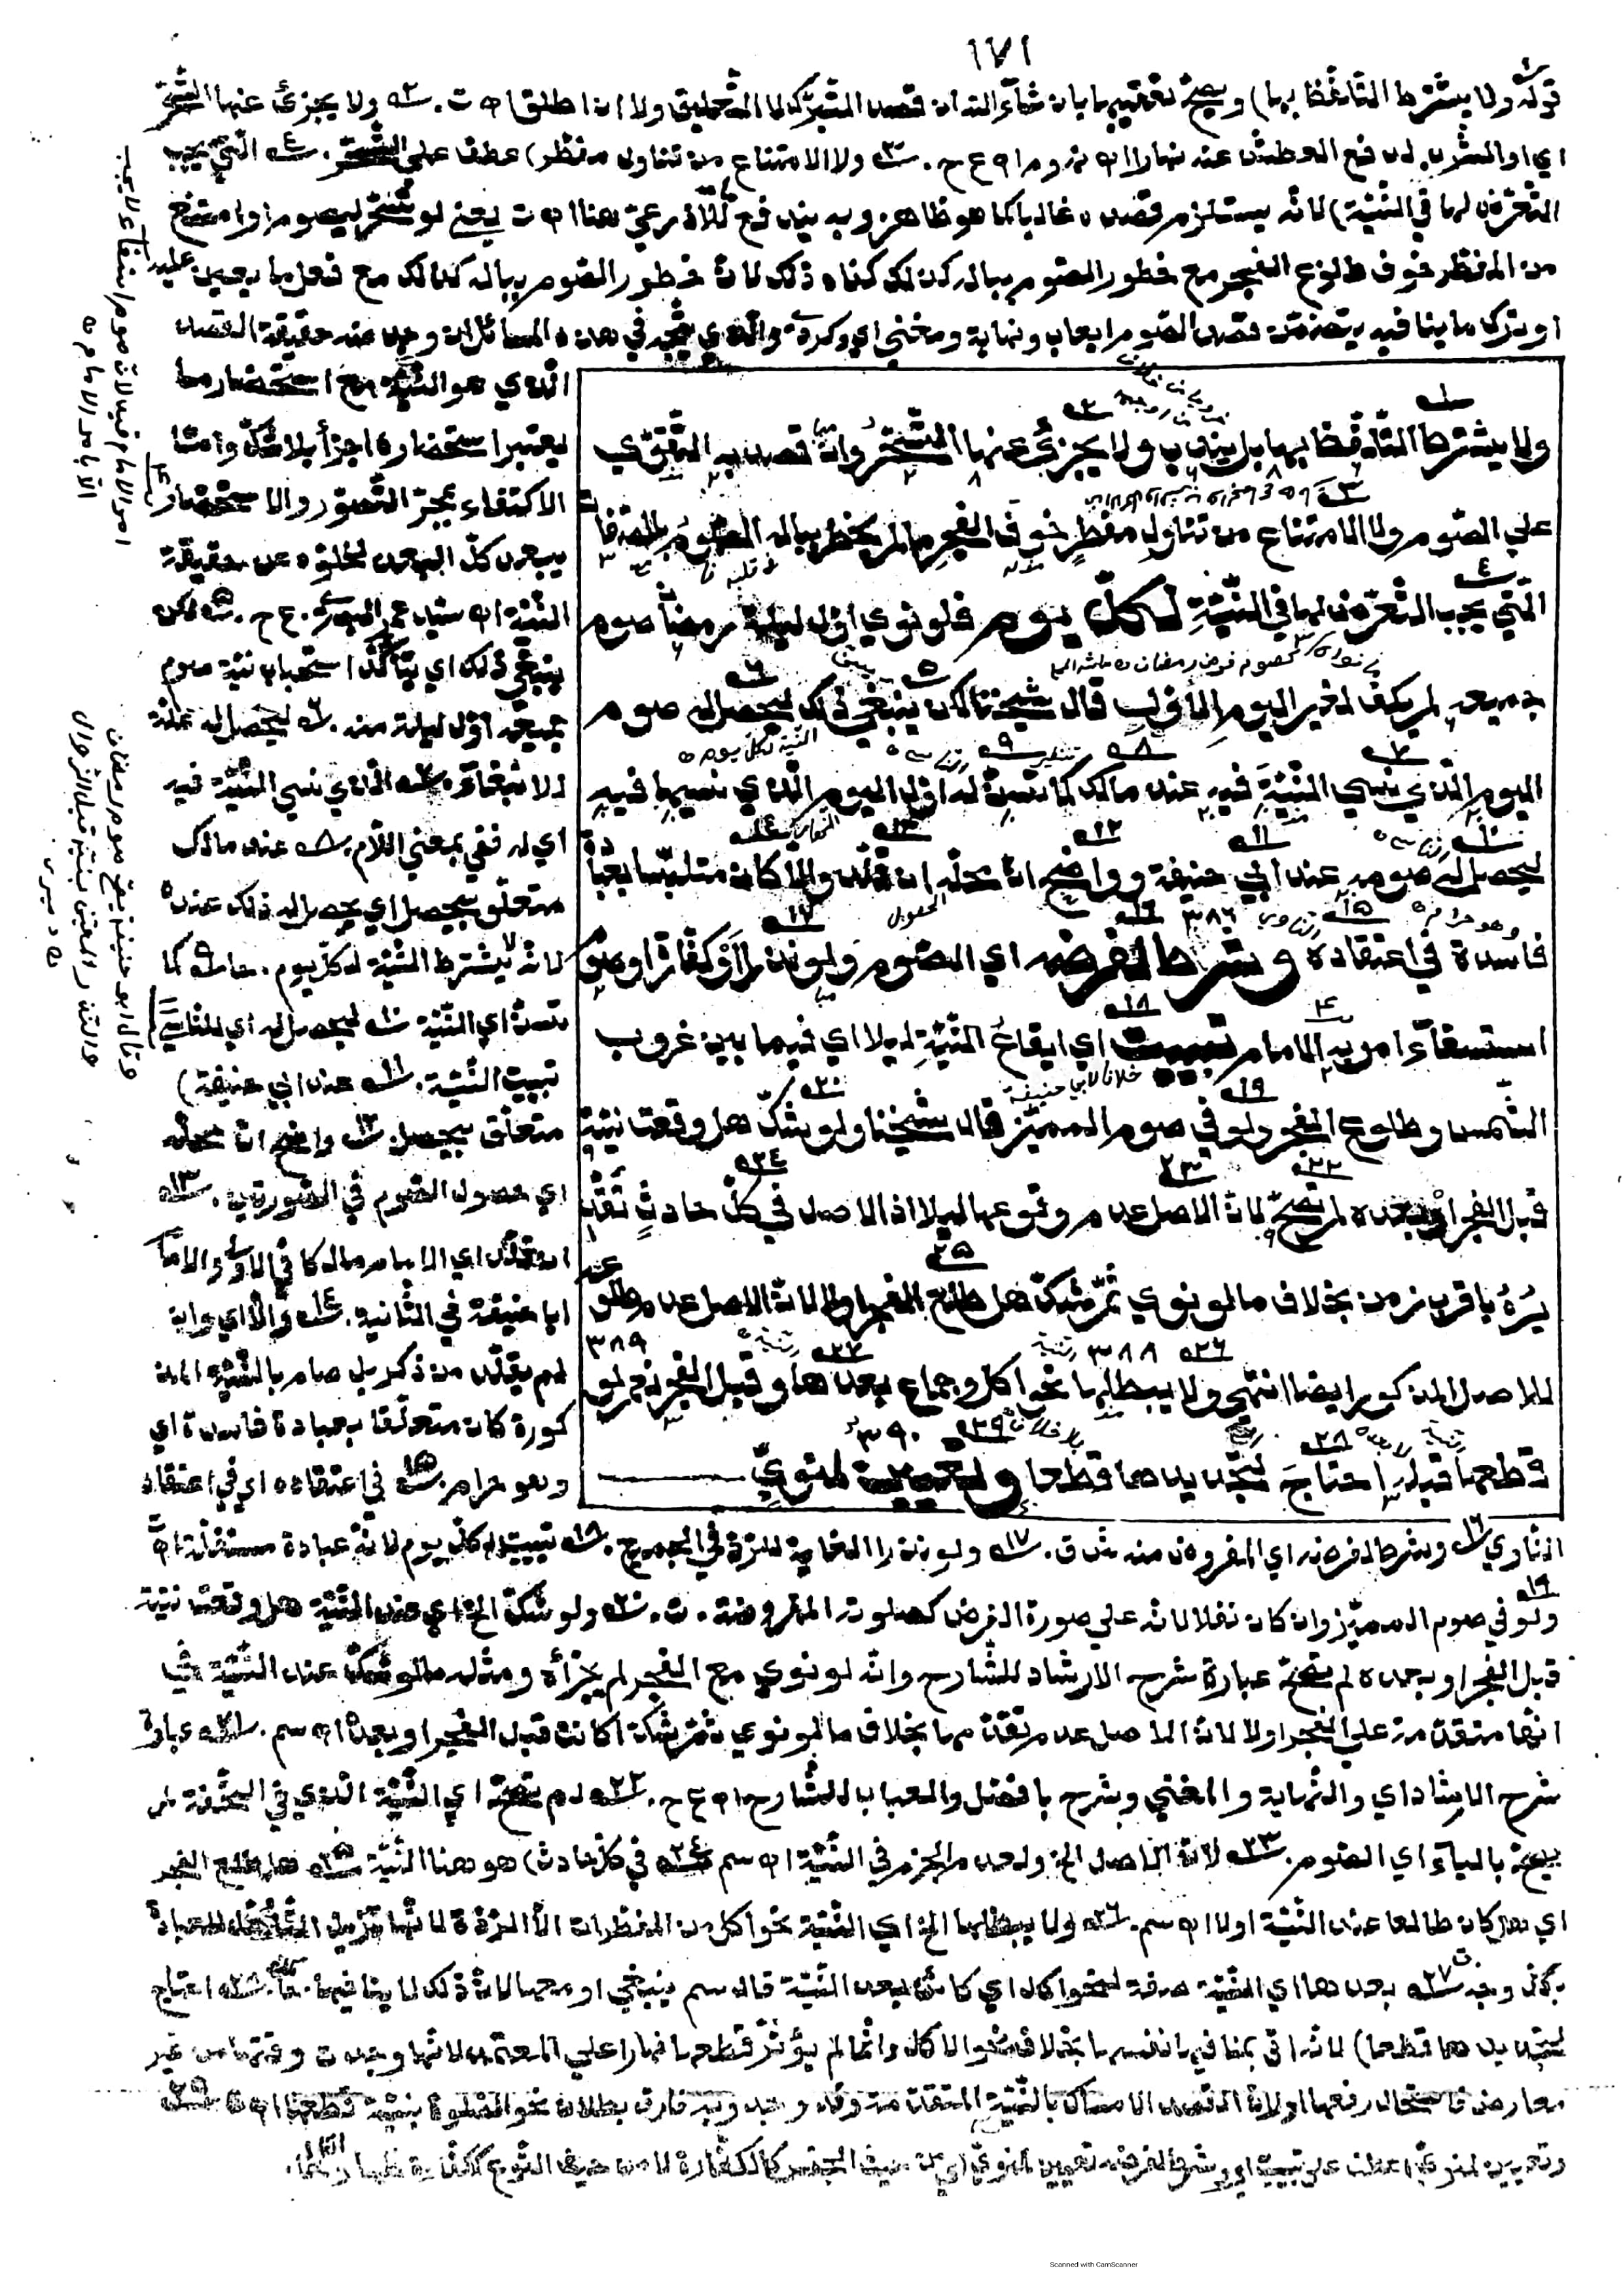 ١٧١
قوله ولا يشترط التلفظ بها) ويصح تعقيبها بان شاء الله ان قصد التبرك لا التعليق ولا ان اطلق اه ت. ٢ ولا يجزئ عنها التسحر
اي او الشرب لدفع العطش عنه نهارا اه نهـ وم اه ع ح. ٣ ولا الامتناع من تناول مفطر) عطف على التسحر. ٤ التي يجب
التعرض لها في النية) لانه يستلزم قصده غالبا كما هو ظاهر وبه يندفع هنا اه ت يعني لو تسحر ليصوم او امتنع
من المفطر خوف طلوع الفجر مع خطور الصوم بباله كذلك كفاه ذلك لان خطور الصوم بباله كذلك مع فعل ما يعين عليه
او ترك ما ينافيه يتضمن قصد الصوم ايعاب ونهاية ومغني اي وكردي والذي يتجه في هذه المسائل ان وجد منه حقيقة القصد
الذي هو النية مع استحضار ما
يعتبر استحضاره اجزأ بلا شك واما
الاكتفاء بمجرد التصور والاستحضار
فبعيد كل البعد لخلوه عن حقيقة
النية اه سيد عمر البصري. ع ح. ٥ لكن
ينبغي ذلك اي يتأكد استحباب نية صوم
جميعه اول ليلة منه. ٦ ليحصل له علة
لا ينبغي ٧ الذي نسي النية فيه
اي له ففي بمعنى اللام. ٨ عند مالك
متعلق بيحصل اي يحصل له ذلك عنده
لانه لا يشترط النية لكل يوم. ٩ كما
تسن اي النية ١٠ ليحصل له اي للناسي
تبييت النية. ١١ عند ابي حنيفة)
متعلق بيحصل. ١٢ واضح ان محله
اي حصول الصوم في الصورتين. ١٣
ان قلد اي الامام مالكا في الاولى والامام
ابا حنيفة في الثانية. ١٤ والا اي وان
لم يقلد من ذكر بل صام بالنية المذ
كورة كان متعلقا بعبادة فاسدة اي
وهو حرام. ١٥ في اعتقاده اي في اعتقاد
ولا يشترط التلفظ بها بل يندب ولا يجزئ عنها التسحر وان قصد به التقوي
على الصوم ولا الامتناع من تناول مفطر خوف الفجر ما لم يخطر بباله الصوم بالصفات
التي يجب التعرض لها في النية لكل يوم فلو نوى اول ليلة رمضان صوم
جميعه لم يكف لغير اليوم الاول قال شيخنا لكن ينبغي ذلك ليحصل له صوم
اليوم الذي نسي النية فيه عند مالك كما تسن له اول اليوم الذي نسيها فيه
ليحصل له صومه عند ابي حنيفة وواضح ان محله ان قلد والا كان متلبسا بعبادة
فاسدة في اعتقاده وشرط لفرضه اي الصوم ولو نذرا او كفارة او صوم
استسقاء امر به الامام تبييت اي ايقاع النية ليلا اي فيما بين غروب
الشمس وطلوع الفجر ولو في صوم المميز قال شيخنا ولو شك هل وقعت نيته
قبل الفجر او بعده لم تصح لان الاصل عدم وقوعها ليلا اذ الاصل في كل حادث تقد
يره باقرب زمن بخلاف ما لو نوى ثم شك هل طلع الفجر او لا لان الاصل عدم طلوعه
للاصل المذكور ايضا انتهى ولا يبطلها نحو اكل وجماع بعدها وقبل الفجر نعم لو
قطعها قبله احتاج لتجديدها قطعا وتعيين لمنوي
الناوي ١٦ وشرط لفرضه اي المفروض منه ش ق. ١٧ ولو نذرا الغاية للرد في الجميع. ١٨ تبييت لكل يوم لانه عبادة مستقلة اه ت
١٩ ولو في صوم المميز وان كان نفلا لانه على صورة الفرض كصلوته المفروضة. ت. ٢٠ ولو شك الخ اي عند النية هل وقعت نيته
قبل الفجر او بعده لم تصح عبارة شرح الارشاد للشارح وانه لو نوى مع الفجر لم يجزأه ومثله ما لو شك عند النية في
انها متقدمة على الفجر اولا لان الاصل عدم تقدمها بخلاف ما لو نوى ثم شك اكانت قبل الفجر او بعده اه سم. ٢١ عبارة
شرح الارشاد اي والنهاية والمغني وشرح بافضل والعباب للشارح اه ع ح. ٢٢ لم تصح اي النية الذي في التحفة لم
يصح بالياء اي الصوم. ٢٣ لان الاصل الخ ولعدم الجزم في النية اه سم ٢٤ في كل حادث) هو هنا النية ٢٥ هل طلع الفجر
اي هل كان طالعا عند النية اولا اه سم. ٢٦ ولا يبطلها الخ اي النية نحو اكل من المفطرات الا الردة لانها تزيل التأهل للعبادة
بكل وجه ٢٧ بعدها اي النية صفة لنحو اكل اي كائن بعد النية قال سم ينبغي او معها لان ذلك لا ينافيها. ٢٨ احتاج
لتجديدها قطعا) لانه اتى بمنافيها نفسها بخلاف نحو الاكل وانما لم يؤثر قطعها نهارا على المعتمد لانها وجدت وقتها من غير
معارض فاستحال رفعها اولان القصد الامساك بالنية المتقدمة وقد وجد وبه فارق بطلان نحو الصلوة بنية قطعها اه ت ٢٩
وتعيين لمنوي) عطف على تبييت اي وشرط لفرضه تعيين لمنوي اي من حيث الجنس كالكفارة لا من حيث النوع ككفارة ظهار
Scanned with CamScanner